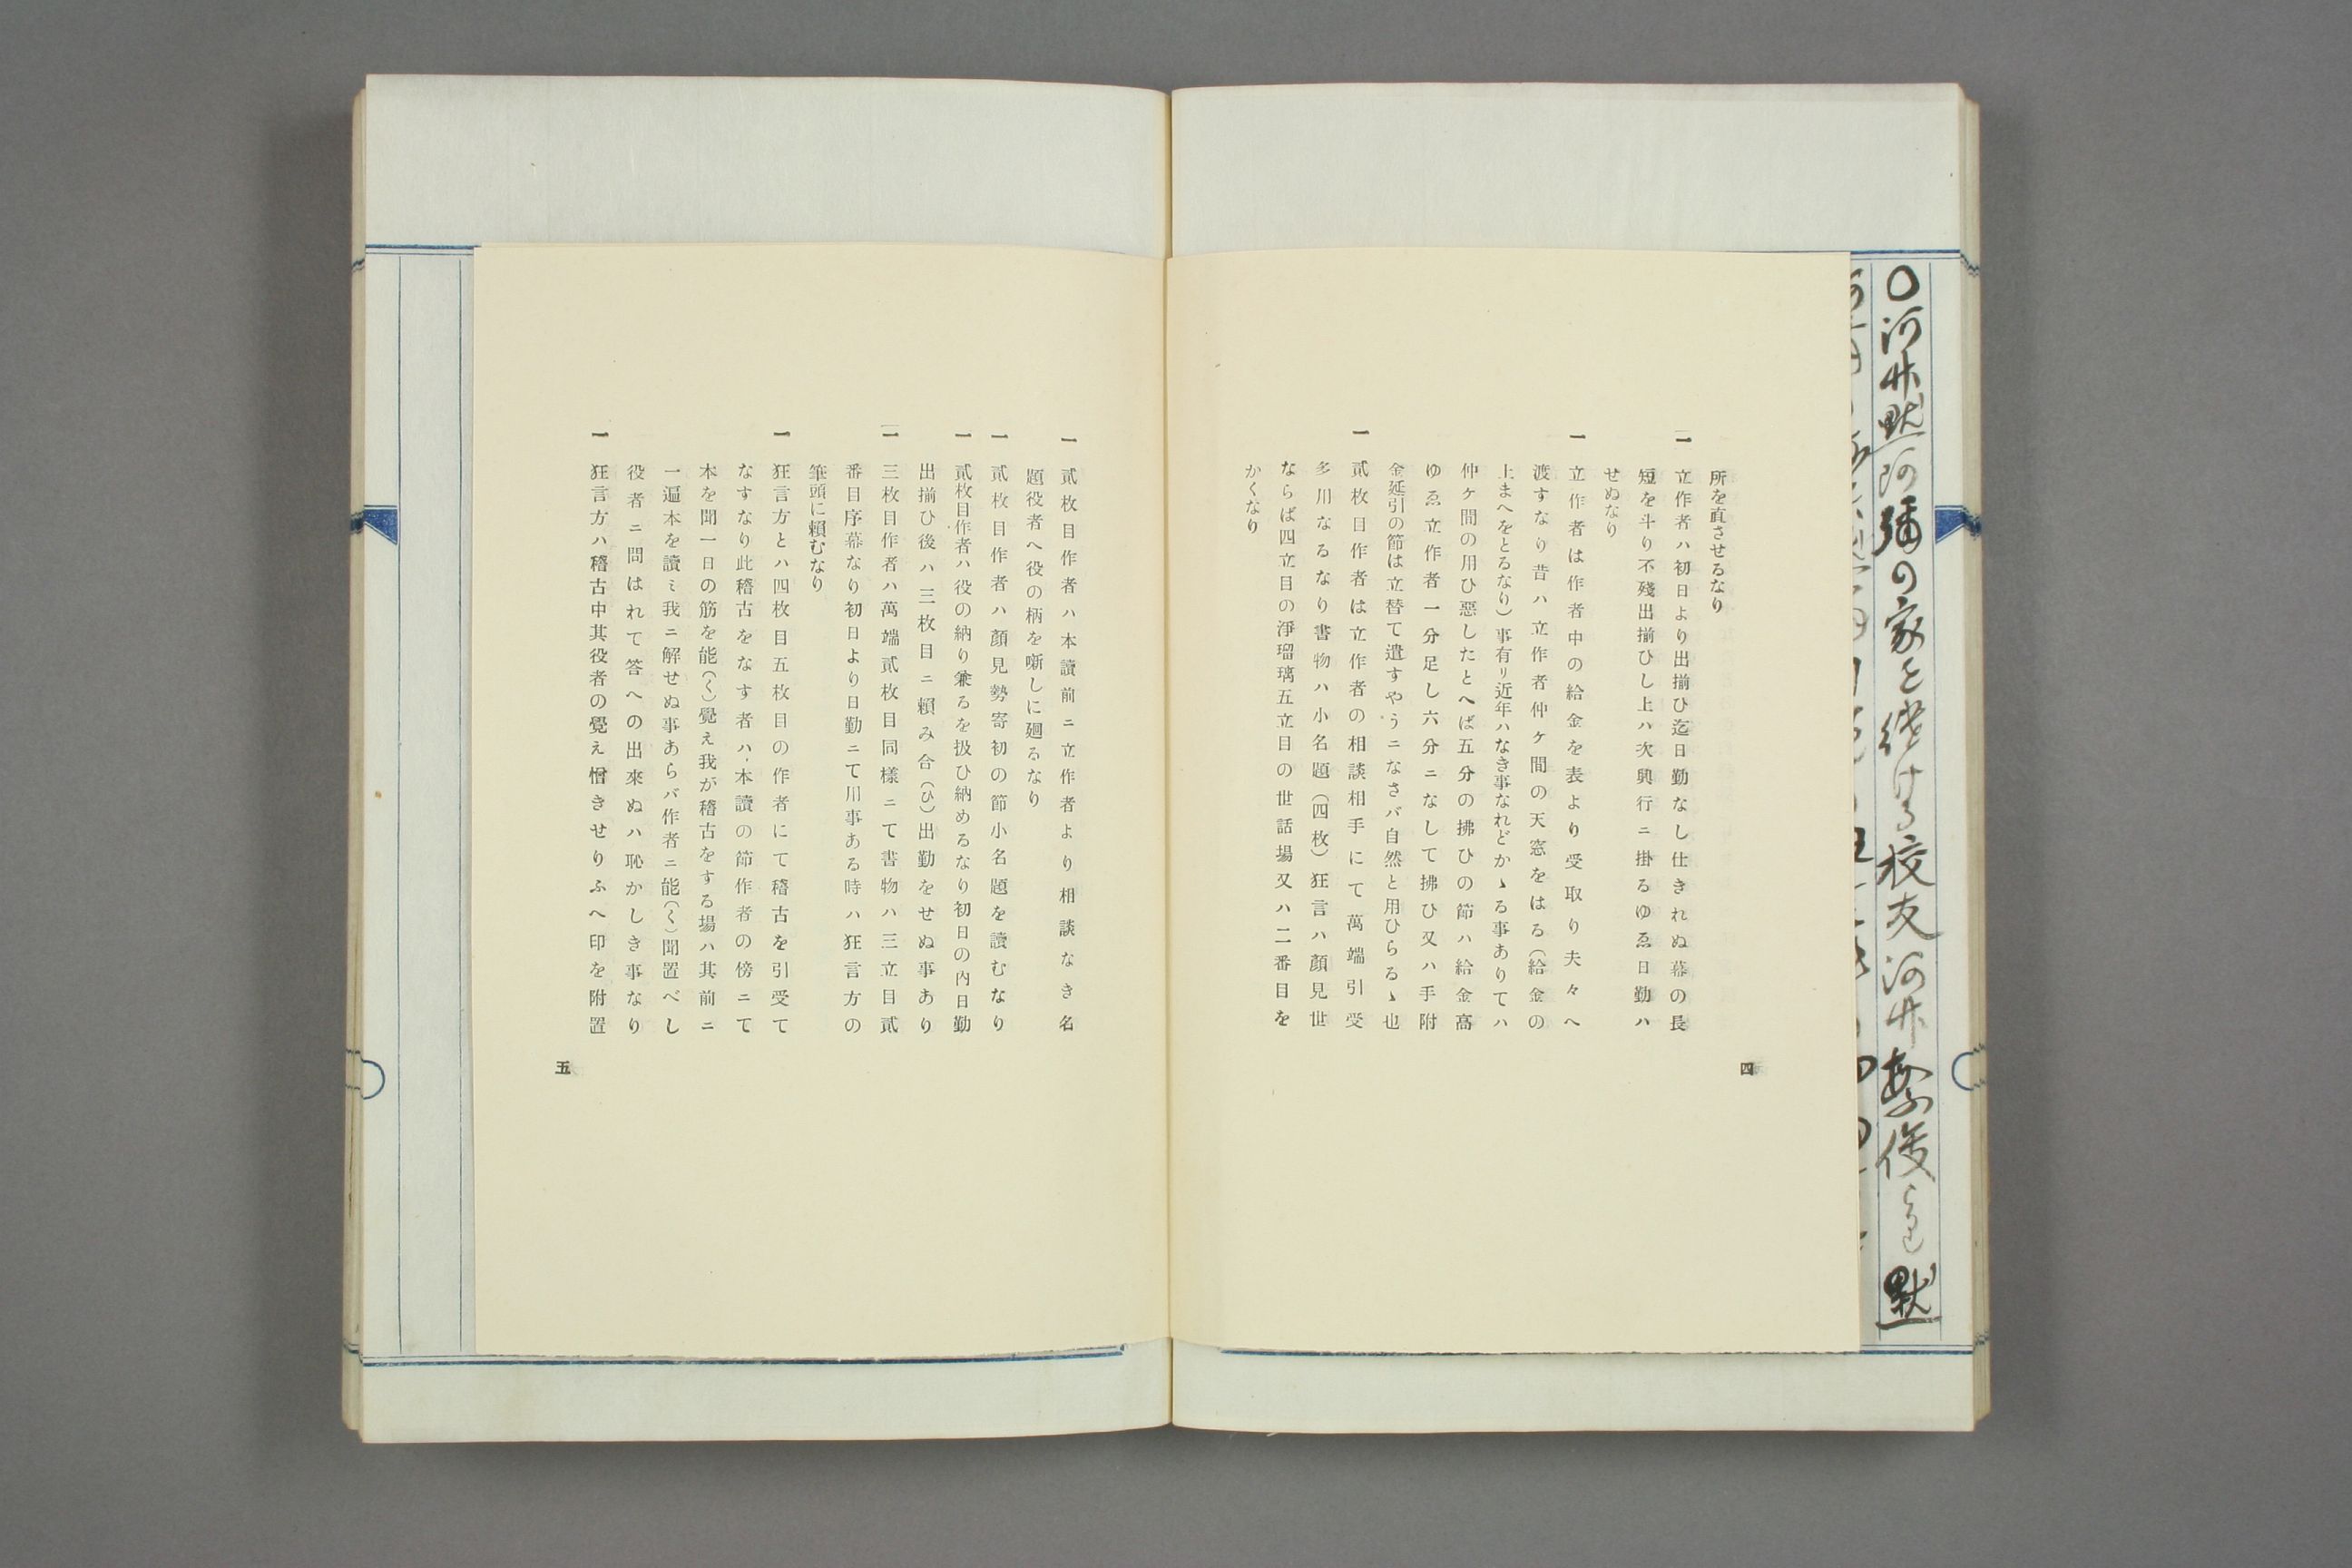 〇河竹黙阿彌の家を継ける校友河竹繁俊くるし黙
所を直させるなり
一 立作者ハ初日より出揃ひ迄日勤なし仕きれぬ幕の長
短を斗り不殘出揃ひし上ハ次興行ニ掛るゆゑ日勤ハ
せぬなり
一 立作者は作者中の給金を表より受取り夫々へ
渡すなり昔ハ立作者仲ヶ間の天窓をはる（給金の
上まへをとるなり）事有リ近年ハなき事なれどかゝる事ありてハ
仲ヶ間の用ひ惡したとへば五分の拂ひの節ハ給金高
ゆゑ立作者一分足し六分ニなして拂ひ又ハ手附
金延引の節は立替て遣すやうニなさバ自然と用ひらるゝ也
一 貳枚目作者は立作者の相談相手にて萬端引受
多用なるなり書物ハ小名題（四枚）狂言ハ顏見世
ならば四立目の淨瑠璃五立目の世話場又ハ二番目を
かくなり
四
一 貳枚目作者ハ本讀前ニ立作者より相談なき名
題役者へ役の柄を噺しに廻るなり
一 貳枚目作者ハ顏見勢寄初の節小名題を讀むなり
一 貳枚目作者ハ役の納り兼るを扱ひ納めるなり初日の内日勤
出揃ひ後ハ三枚目ニ賴み合（ひ）出勤をせぬ事あり
一 三枚目作者ハ萬端貳枚目同樣ニて書物ハ三立目貳
番目序幕なり初日より日勤ニて用事ある時ハ狂言方の
筆頭に賴むなり
一 狂言方とハ四枚目五枚目の作者にて稽古を引受て
なすなり此稽古をなす者ハ本讀の節作者の傍ニて
本を聞一日の筋を能（く）覺え我が稽古をする場ハ其前ニ
一遍本を讀ミ我ニ解せぬ事あらバ作者ニ能（く）聞置べし
役者ニ問はれて答への出來ぬハ恥かしき事なり
一 狂言方ハ稽古中其役者の覺え憎きせりふへ印を附置
五